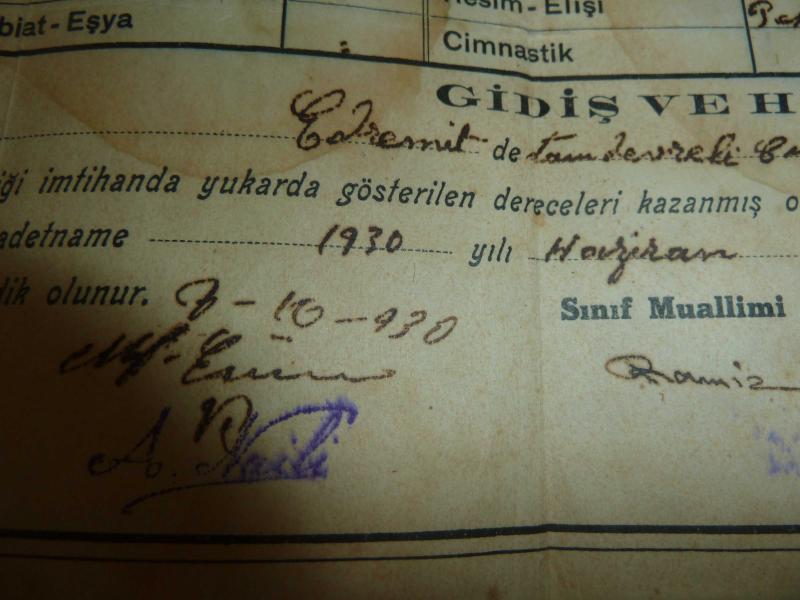 biat - Eşya
Resim - Elişi
Cimnastik
GİDİŞ VE H
Edremit de tamdevreli
iği imtihanda yukarda gösterilen dereceleri kazanmış o
adetname 1930 yılı Haziran
dik olunur. 7-10-930
Sınıf Muallimi
Emin
Ramiz
A. Naili